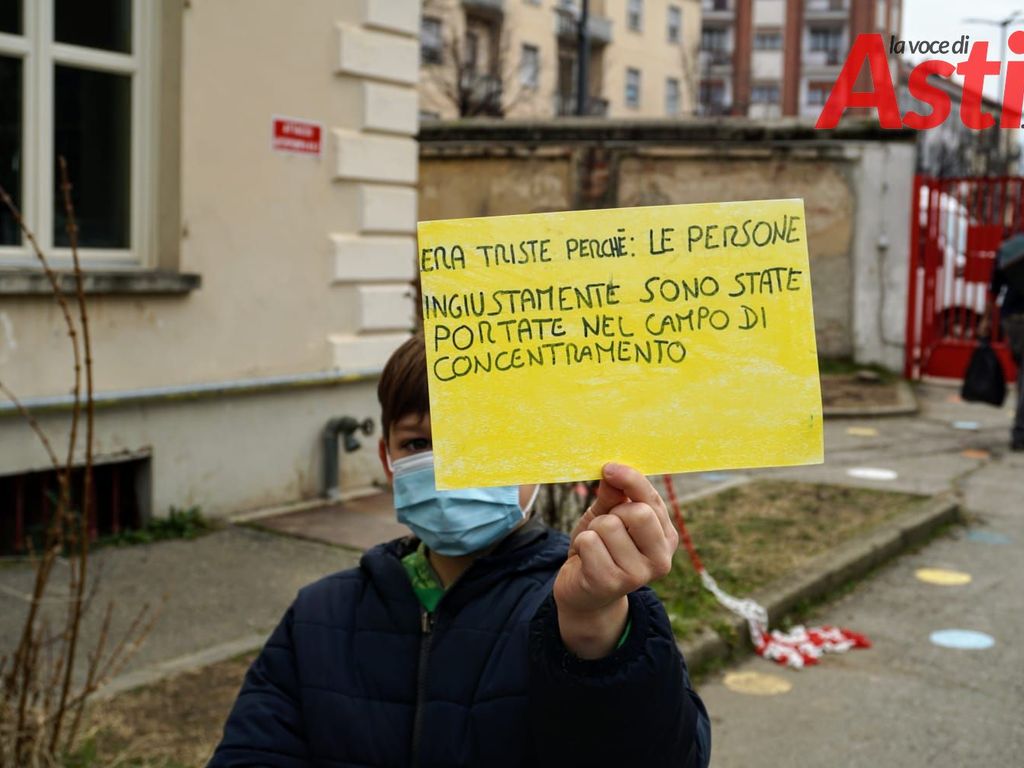 la voce di
Asti
ERA TRISTE PERCHĒ: LE PERSONE
INGIUSTAMENTE SONO STATE
PORTATE NEL CAMPO DI
CONCENTRAMENTO